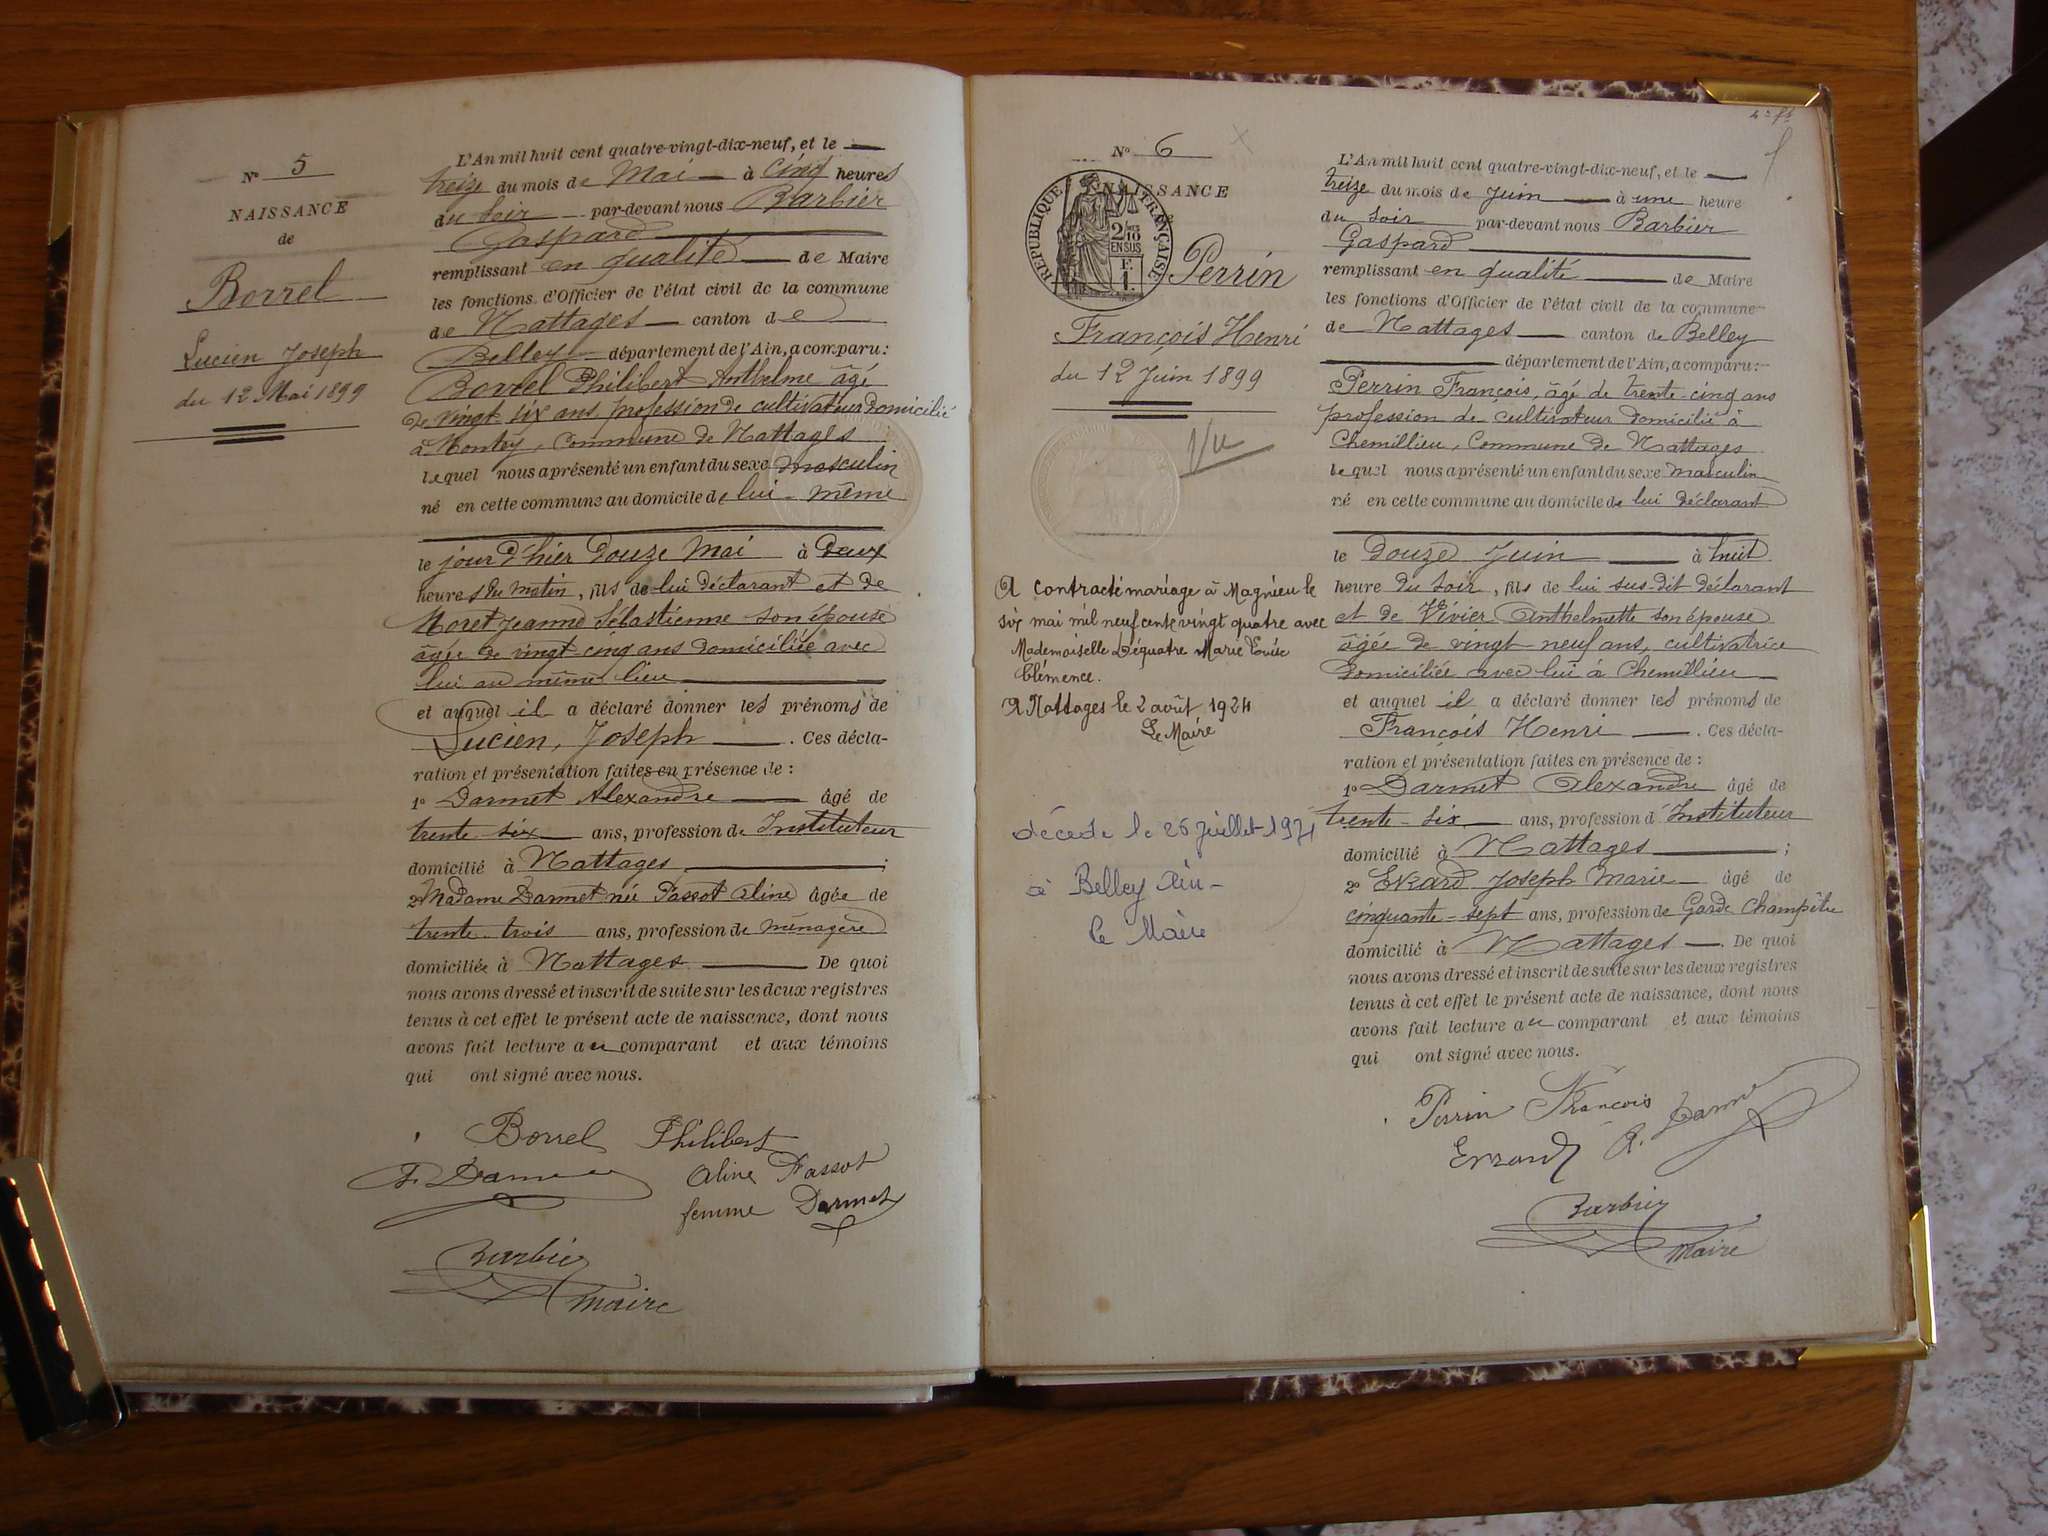 N° 5
NAISSANCE
de
Borrel
Lucien Joseph
du 12 Mai 1899
L'An mil huit cent quatre-vingt-dix-neuf, et le
treize du mois de Mai à cinq heures
du soir par-devant nous Barbier
Gaspard
remplissant en qualité de Maire
les fonctions d'Officier de l'état civil de la commune
de Nattages canton de
Belley département de l'Ain, a comparu:
Borrel Philibert Anthelme âgé
de vingt-six ans, profession de cultivateur domicilié
à commune de Nattages
lequel nous a présenté un enfant du sexe masculin
né en cette commune au domicile de lui-même
le jour d'hier douze Mai à deux
heures du matin, fils de lui déclarant et de
Moret Jeanne Sébastienne son épouse
âgée de vingt-cinq ans domiciliée avec
lui au même lieu
et auquel il a déclaré donner les prénoms de
Lucien, Joseph. Ces décla-
ration et présentation faites en présence de :
1° Darmet Alexandre âgé de
trente-six ans, profession de Instituteur
domicilié à Nattages ;
2° Madame Darmet née Passot Aline âgée de
trente-trois ans, profession de ménagère
domiciliée à Nattages De quoi
nous avons dressé et inscrit de suite sur les deux registres
tenus à cet effet le présent acte de naissance, dont nous
avons fait lecture au comparant et aux témoins
qui ont signé avec nous.
Borrel Philibert
Aline Passot
femme Darmet
Barbier
Maire
N° 6
NAISSANCE
REPUBLIQUE FRANÇAISE
2/10
EN SUS
Perrin
François Henri
du 12 Juin 1899
Vu
A contracté mariage à Magnieu le
six mai mil neuf cent vingt quatre avec
Mademoiselle Déquatre Marie Louise
Clémence.
A Nattages le 2 août 1924
Le Maire
décédé le 25 juillet 1971
à Belley Ain-
le Maire
L'An mil huit cent quatre-vingt-dix-neuf, et le
treize du mois de Juin à une heure
du soir par-devant nous Barbier
Gaspard
remplissant en qualité de Maire
les fonctions d'Officier de l'état civil de la commune
de Nattages canton de Belley
département de l'Ain, a comparu:
Perrin François, âgé de trente-cinq ans
profession de cultivateur domicilié à
Chemillieu, Commune de Nattages
lequel nous a présenté un enfant du sexe masculin
né en cette commune au domicile de lui déclarant
le douze Juin à huit
heure du soir, fils de lui sus-dit déclarant
et de Vivier Anthelmette son épouse
âgée de vingt-neuf ans, cultivatrice
domiciliée avec lui à Chemillieu
et auquel il a déclaré donner les prénoms de
François Henri. Ces décla-
ration et présentation faites en présence de :
1° Darmet Alexandre âgé de
trente-six ans, profession d'Instituteur
domicilié à Nattages ;
2° Evrard Joseph Marie âgé de
cinquante-sept ans, profession de Garde Champêtre
domicilié à Nattages. De quoi
nous avons dressé et inscrit de suite sur les deux registres
tenus à cet effet le présent acte de naissance, dont nous
avons fait lecture au comparant et aux témoins
qui ont signé avec nous.
Perrin François
Evrard
Barbier
Maire